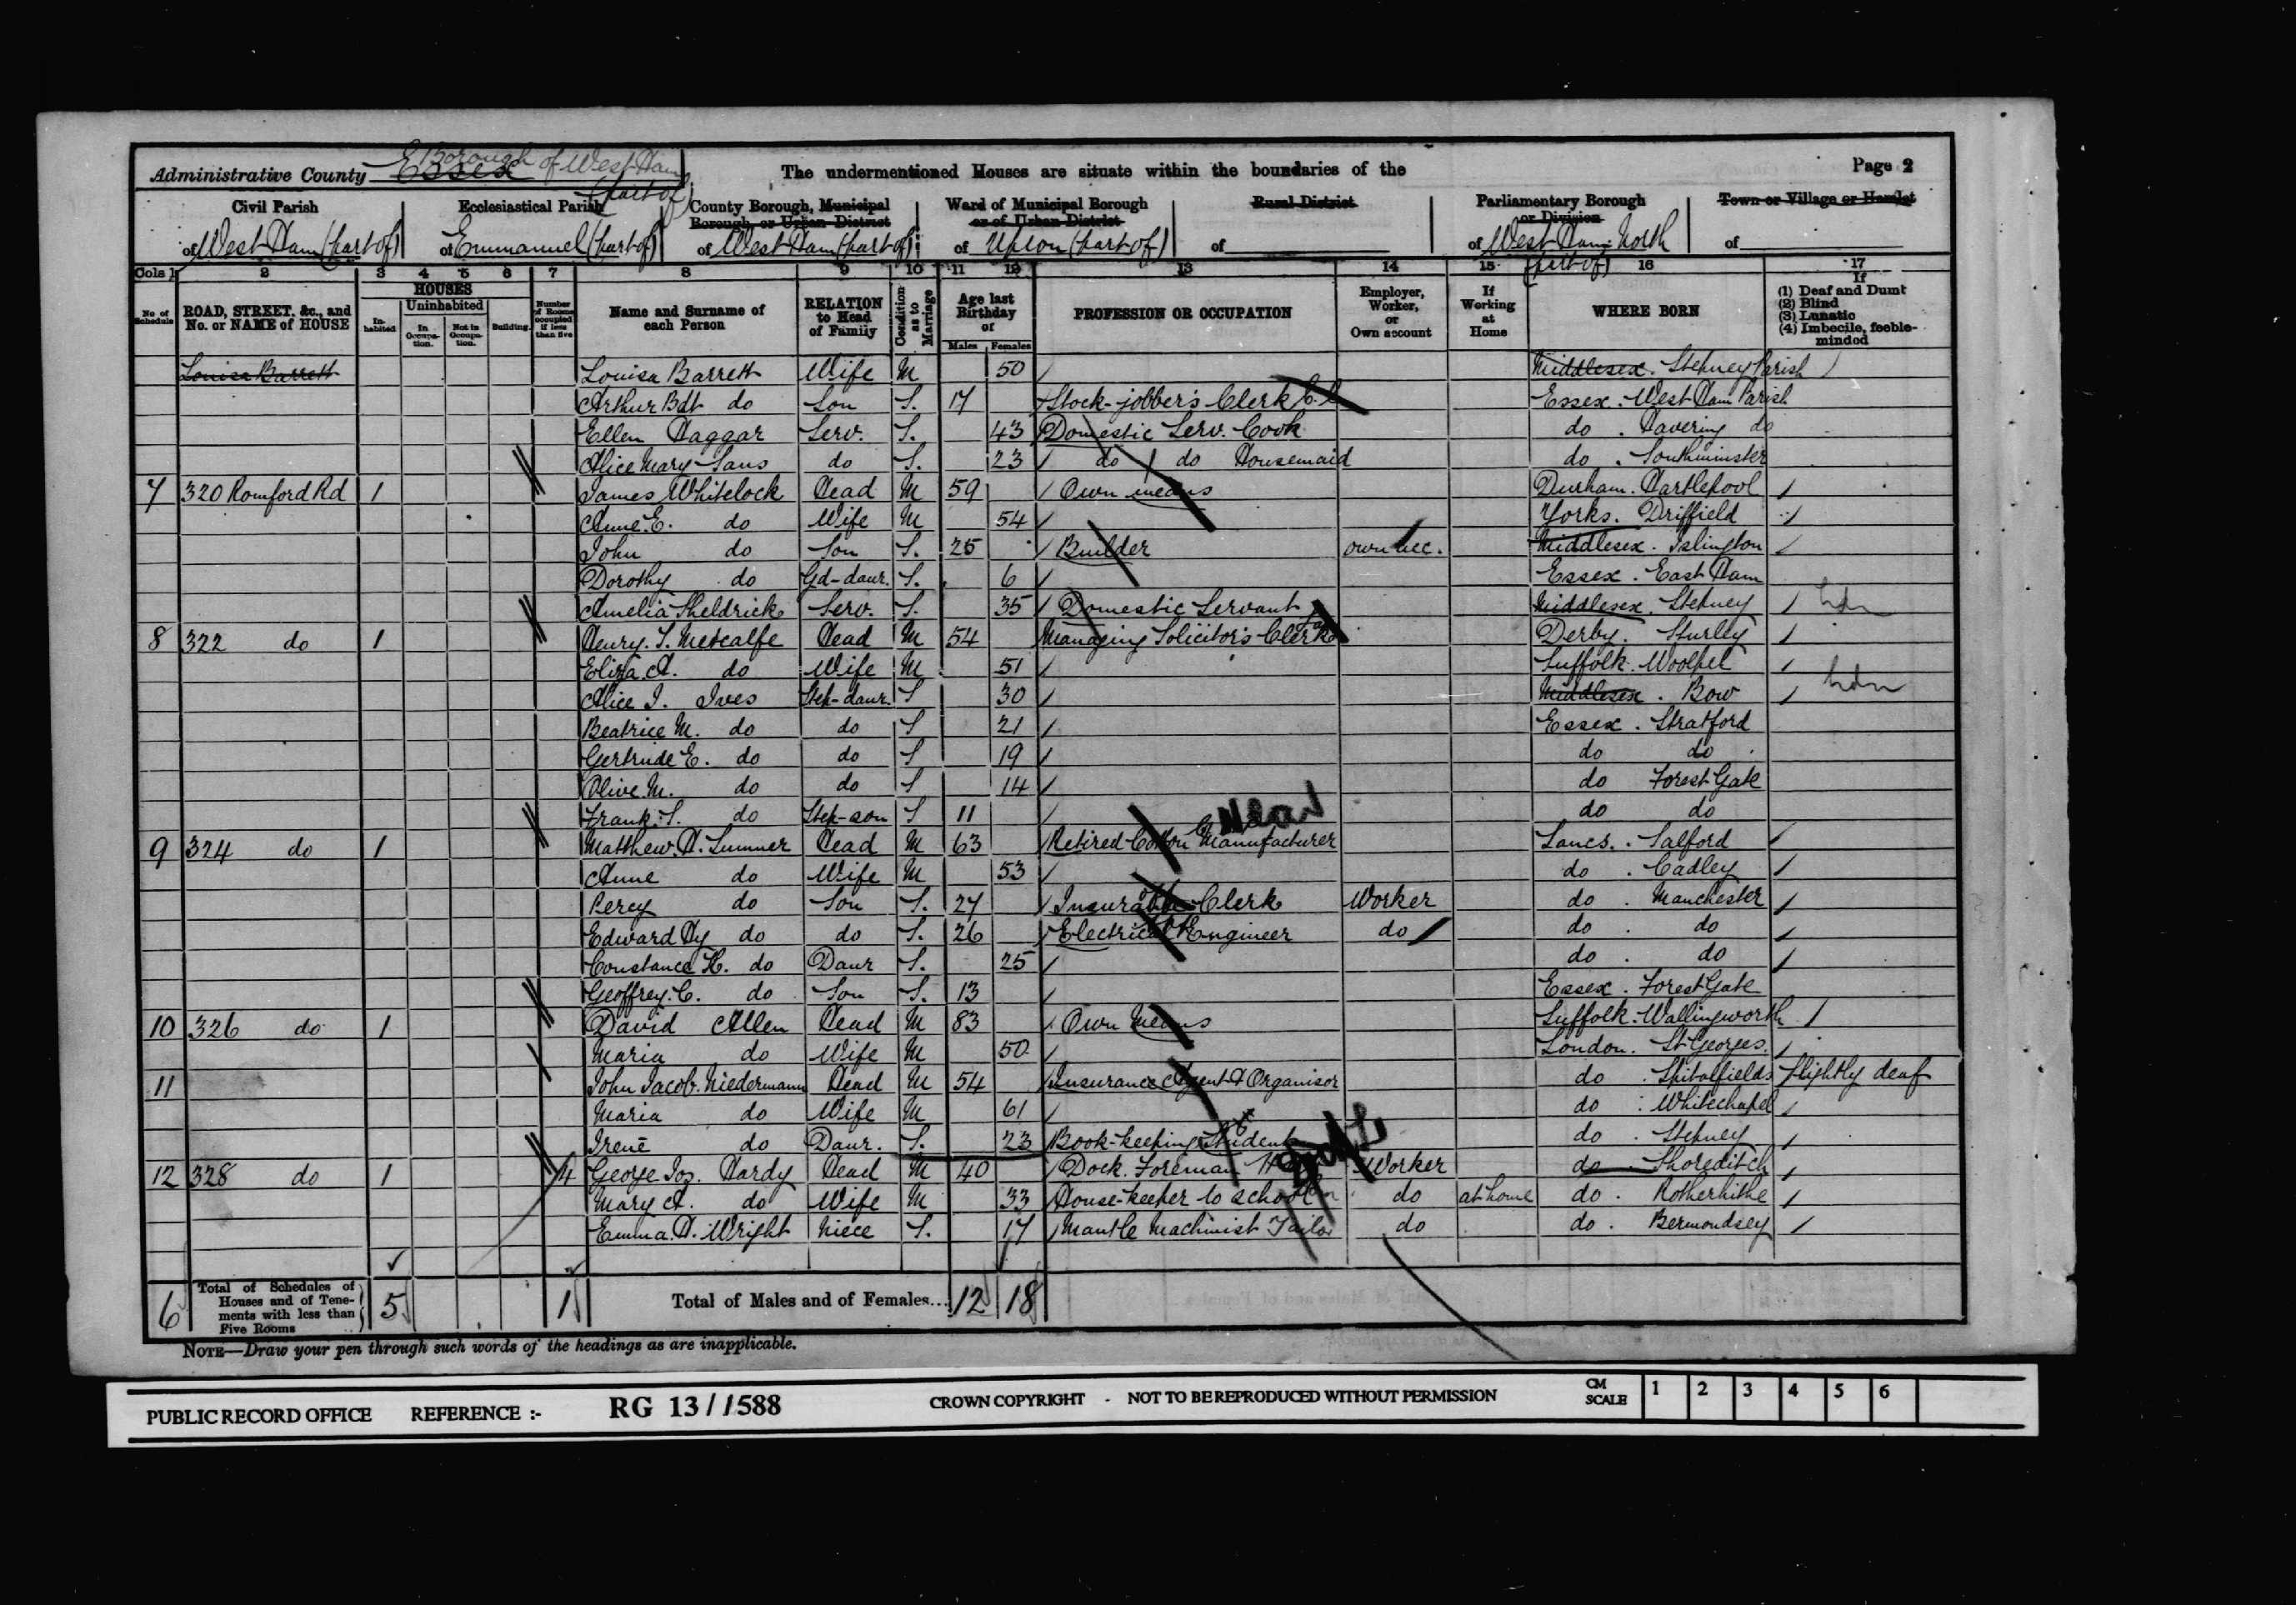 Administrative County Essex Borough of West Ham (part of)
The undermentioned Houses are situate within the boundaries of the
Page 2
Civil Parish of West Ham (part of)
Ecclesiastical Parish of Emmanuel (part of)
County Borough, Municipal Borough, or Urban District of West Ham (part of)
Ward of Municipal Borough or of Urban District of Upton (part of)
Rural District of
Parliamentary Borough or Division of West Ham North (part of)
Town or Village or Hamlet of
Cols 1 2 3 4 5 6 7 8 9 10 11 12 13 14 15 16 17
No of Schedule
ROAD, STREET, &c., and No. or NAME of HOUSE
HOUSES
Inhabited
Uninhabited
In Occupation.
Not in Occupation.
Building.
Number of Rooms occupied if less than five
Name and Surname of each Person
RELATION to Head of Family
Condition as to Marriage
Age last Birthday of
Males Females
PROFESSION OR OCCUPATION
Employer, Worker, or Own account
If Working at Home
WHERE BORN
If (1) Deaf and Dumb (2) Blind (3) Lunatic (4) Imbecile, feeble-minded
Louisa Barrett Louisa Barrett Wife M 50 Middlesex. Stepney Parish
Arthur Bdt do Son S. 17 Stock-jobber's Clerk Essex. West Ham Parish
Ellen Haggar Serv. S. 43 Domestic Serv. Cook do . Havering do
Alice Mary Sans do S. 23 do do Housemaid do . Southminster
7 320 Romford Rd 1 James Whitelock Head M 59 Own means Durham. Hartlepool
Anne E. do Wife M 54 Yorks. Driffield
John do Son S. 25 Builder own acc. Middlesex. Islington
Dorothy do Gd-daur. S. 6 Essex. East Ham
Amelia Sheldrick Serv. S. 35 Domestic Servant Middlesex. Stepney ldn
8 322 do 1 Henry. S. Metcalfe Head M 54 Managing Solicitor's Clerk Derby. Shirley
Eliza. A. do Wife M 51 Suffolk. Woolpit
Alice I. Ives Step-daur. S 30 Middlesex. Bow ldn
Beatrice M. do do S 21 Essex. Stratford
Gertrude E. do do S 19 do do
Olive M. do do S 14 do Forest Gate
Frank. S. do Step-son S 11 do do
9 324 do 1 Matthew. H. Sumner Head M 63 Retired Cotton Manufacturer Lancs. Salford
Anne do Wife M 53 do . Cadley
Percy do Son S. 27 Insurance Clerk Worker do . Manchester
Edward Hy do do S. 26 Electrical Engineer do do . do
Constance H. do Daur S. 25 do . do
Geoffrey. C. do Son S. 13 Essex. Forest Gate
10 326 do 1 David Allen Head M 83 Own Means Suffolk. Wallingworth
Maria do Wife M 50 London. St Georges.
11 John Jacob Niedermann Head M 54 Insurance Agent & Organisor do . Spitalfields Slightly deaf
Maria do Wife M 61 do . Whitechapel
Irene do Daur. S. 23 Book-keeping Student do . Stepney
12 328 do 1 4 George Jos. Hardy Head M 40 Dock. Foreman Worker do . Shoreditch
Mary A. do Wife M 33 House-keeper to school do at home do . Rotherhithe
Emma. H. Wright Niece S. 17 Mantle Machinist Tailor do do . Bermondsey
6 Total of Schedules of Houses and of Tenements with less than Five Rooms 5 1 Total of Males and of Females... 12 18
NOTE—Draw your pen through such words of the headings as are inapplicable.
PUBLIC RECORD OFFICE REFERENCE :- RG 13 / 1588 CROWN COPYRIGHT - NOT TO BE REPRODUCED WITHOUT PERMISSION CM SCALE 1 2 3 4 5 6